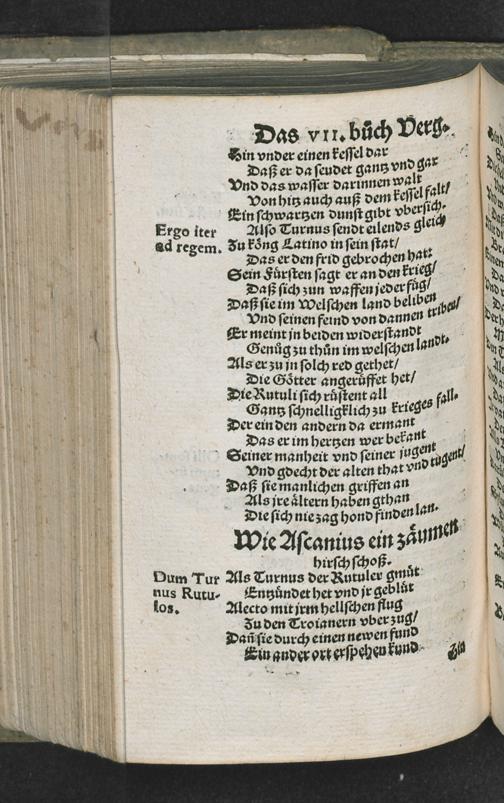 Das VII. bůch Verg.
Hin vnder einen kessel dar
Daß er da seudet gantz vnd gar
Vnd das wasser darinnen walt
Von hitz auch auß dem kessel falt/
Ein schwartzen dunst gibt vbersich.
Ergo iter
ad regem.
Also Turnus sendt eilends gleich
Zu kőng Latino in sein stat/
Das er den frid gebrochen hat:
Sein Fürsten sagt er an den krieg/
Daß sich zun waffen jeder füg/
Daß sie im Welschen land beliben
Vnd seinen feind von dannen triben/
Er meint jn beiden widerstandt
Genůg zu thůn im welschen landt.
Als er zu jn solch red gethet/
Die Götter angerüffet het/
Die Rutuli sich rüstent all
Gantz schnelligklich zu krieges fall.
Der ein den andern da ermant
Das er im hertzen wer bekant
Seiner manheit vnd seiner jugent
Vnd gdecht der alten that vnd tugent/
Daß sie manlichen griffen an
Als jre ältern haben gthan
Die sich nie zag hond finden lan.
Wie Ascanius ein zäumen
hirsch schoß.
Dum Tur
nus Rutu-
los.
Als Turnus der Rutuler gmüt
Entzündet het vnd jr geblüt
Alecto mit jrm hellschen flug
Zu den Troianern vber zug/
Dañ sie durch einen newen fund
Ein ander ort erspehen kund